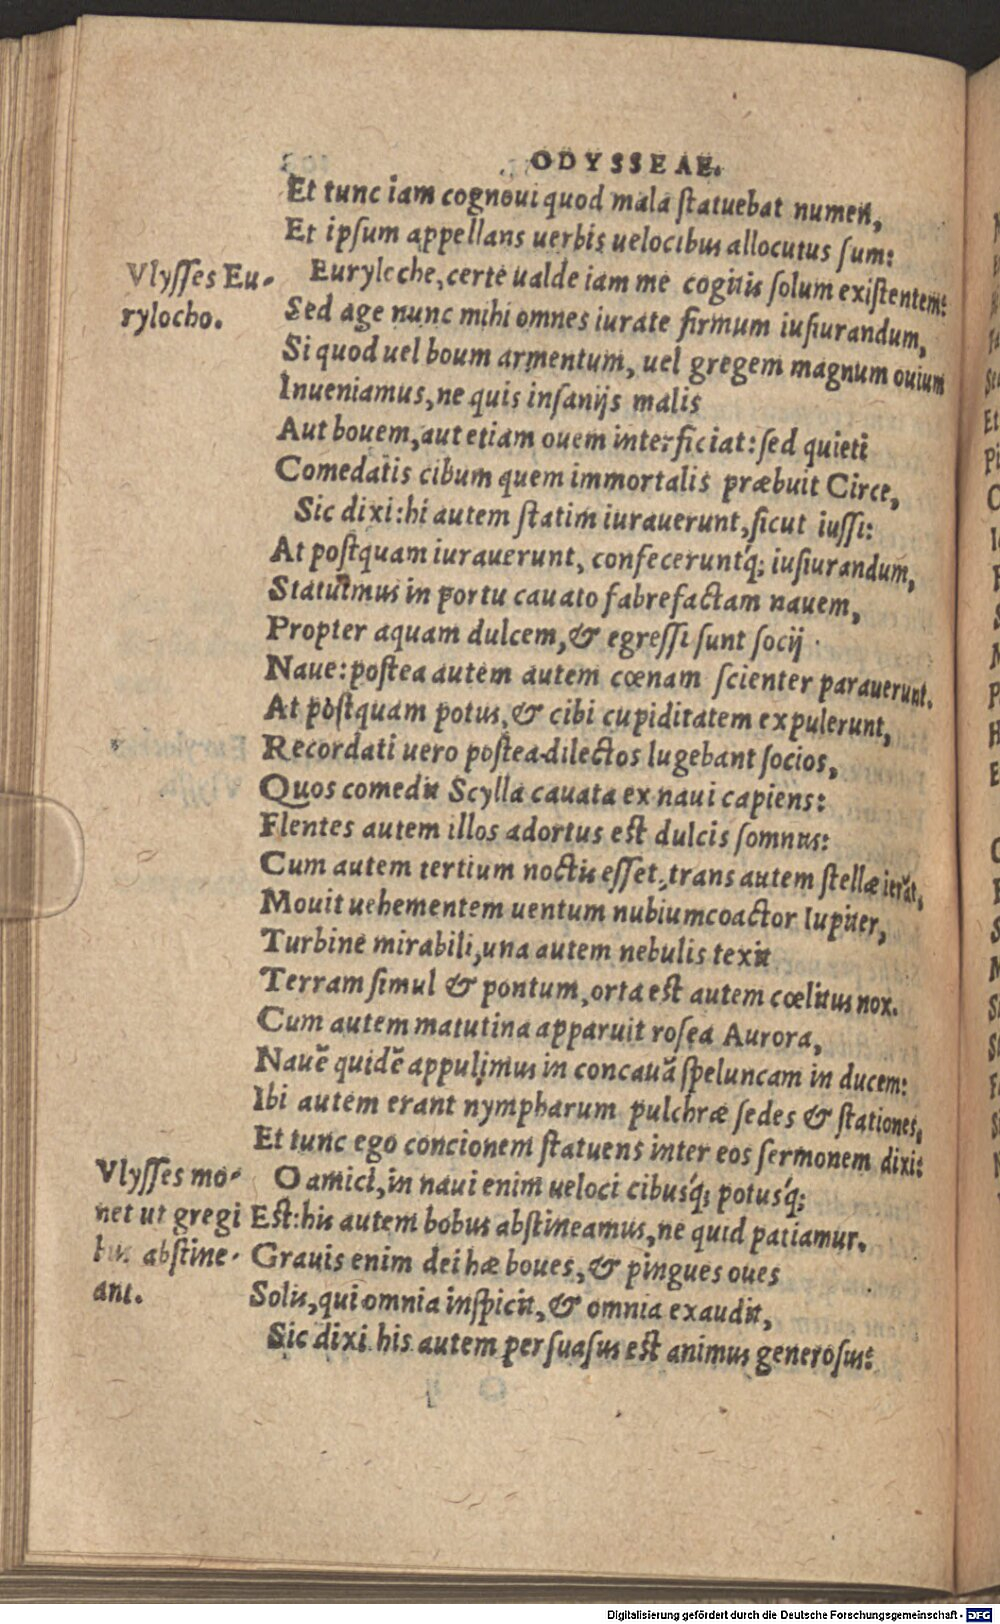 ODYSSEAE.
Et tunc iam cognoui quod mala ſtatuebat numen,
Et ipſum appellans uerbis uelocibus allocutus ſum:
Vlyſſes Eu-
rylocho.
Euryloche, certè ualde iam me cogitis ſolum exiſtentem:
Sed age nunc mihi omnes iurate firmum iuſiurandum,
Si quod uel boum armentum, uel gregem magnum ouium
Inueniamus, ne quis inſanijs malis
Aut bouem, aut etiam ouem interficiat: ſed quieti
Comedatis cibum quem immortalis præbuit Circe,
Sic dixi: hi autem ſtatim iurauerunt, ſicut iuſſi:
At poſtquam iurauerunt, confeceruntq́; iuſiurandum,
Statuimus in portu cauato fabrefactam nauem,
Propter aquam dulcem, & egreſſi ſunt socij
Naue: poſtea autem autem cœnam ſcienter parauerunt.
At poſtquam potus, & cibi cupiditatem expulerunt,
Recordati uero poſtea dilectos lugebant ſocios,
Quos comedit Scylla cauata ex naui capiens:
Flentes autem illos adortus eſt dulcis ſomnus:
Cum autem tertium noctis eſſet, trans autem ſtellæ irāt,
Mouit uehementem uentum nubiumcoactor Iupiter,
Turbine mirabili, una autem nebulis texit
Terram ſimul & pontum, orta eſt autem cœlitus nox.
Cum autem matutina apparuit roſea Aurora,
Nauē quidē appulimus in concauā ſpeluncam in ducem:
Ibi autem erant nympharum pulchræ ſedes & ſtationes,
Et tunc ego concionem ſtatuens inter eos ſermonem dixi:
Vlyſſes mo-
net ut gregi
bus abſtine-
ant.
O amici, in naui enim ueloci cibusq́; potusq́;
Eſt: his autem bobus abſtineamus, ne quid patiamur.
Grauis enim dei hæ boues, & pingues oues
Solis, qui omnia inſpicit, & omnia exaudit,
Sic dixi his autem perſuaſus eſt animus generoſus:
Digitalisierung gefördert durch die Deutsche Forschungsgemeinschaft - DFG